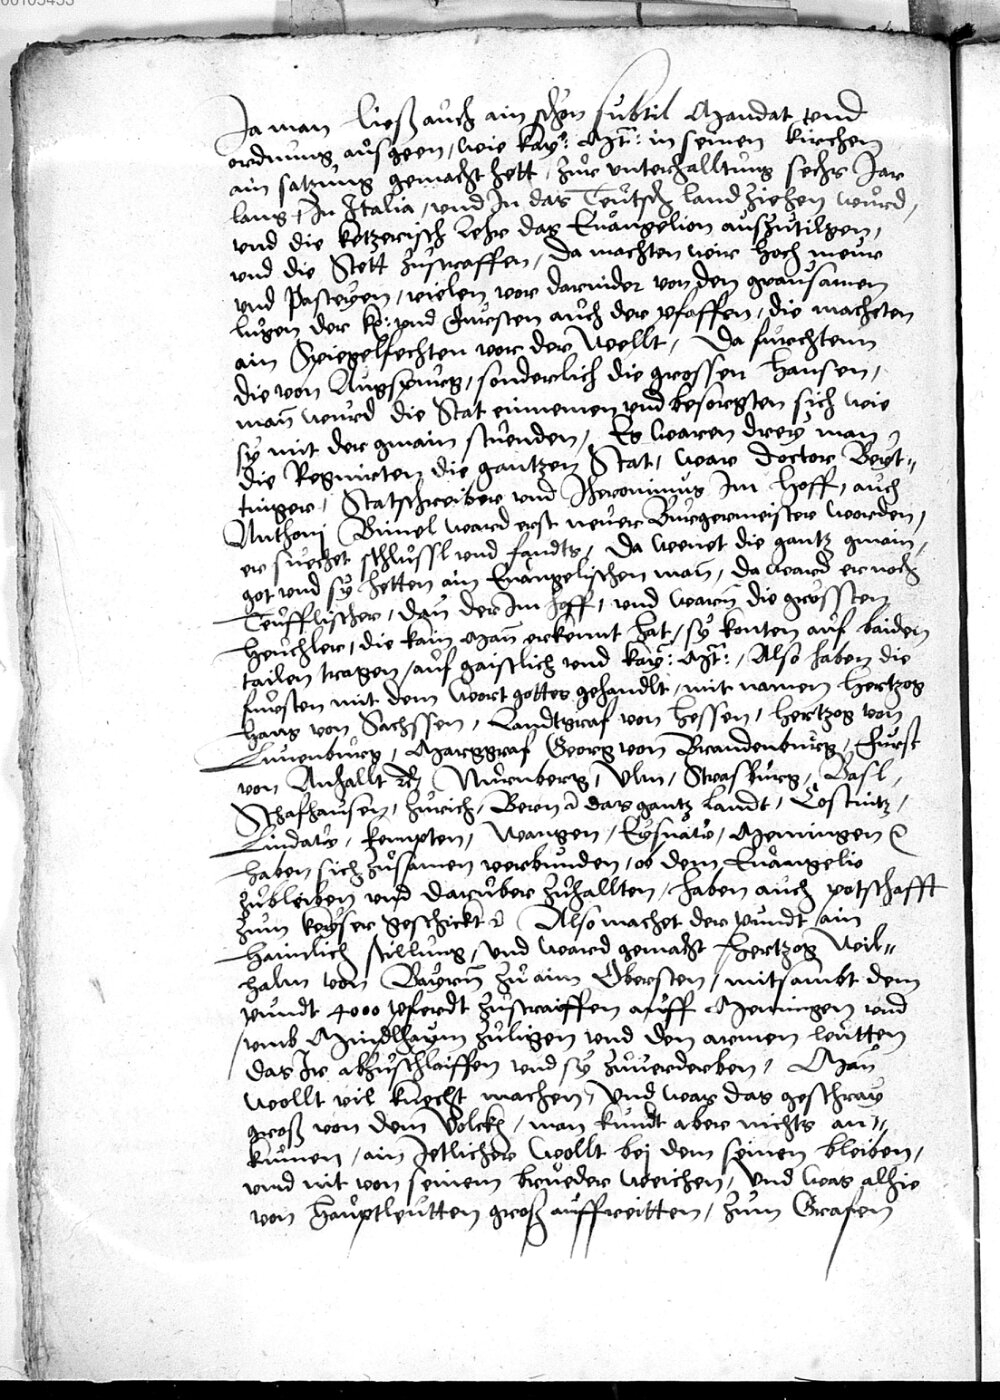 00105455
Ja man ließ auch ain schön subtil Mandat vnd
ordnung ausgeen, wie kay: Mt: in seinen kirchen
ain satzung gemacht hett, zur vnterhalltung sechs Jar
lang, In Italia, vnd In das Teutsch land ziehen wurd,
vnd die ketzerisch Lehr das Euangelion auszutilgen,
vnd die Stett zustraffen, da machten wir hoch meur
vnd Pasteyen, vielen vor darnider von den grausamen
lugen der kö: vnd fursten auch der pfaffen, die macheten
ain Spiegelfechten vor der Wellt, Da furchtenn
die von Augspurg, sonderlich die grossen hansen,
man wurd die Stat einnemen vnd besorgten sich wie
sy mit der gmain stuenden, Es waren drey man
die Regnirten die gantzen Stat, war doctor Beut=
tinger, Statschreiber vnd Jheronimus Im Hoff, auch
Anthonj Bimel ward erst neuer Burgermeister worden,
er suechet schlussl vnd fandts, Da wenet die gantz gmain,
got vnd sy hetten ain Euangelischen man, da ward er noch
Teufflischer, dan der Im Hoff, vnd warn die grössten
Heuchler, die kain Man erkennt hat, sy konten auf baiden
tailen tragen, auf gaistlich vnd kay: Mt:, Also haben die
fursten mit dem wort gottes gehandlt, mit namen Hertzog
Hans von Sachssen, Landtgraf von Hessen, Hertzog von
Lunenburg, Marggraf Georg von Brandenburg, Furst
von Anhallt Nurnberg, Vlm, Strasburg, Basl,
Schafhausen, Zurich, Bern das gantz Landt, Costnitz,
Lindaw, kempten, Wangen, Eysnaw, Memingen
haben sich zusamen verbunden, ob dem Euangelio
zubleiben vnd daruber zuhallten, haben auch potschafft
zum keyser geschickt Also machet der pundt ain
Haimlich stillung, vnd ward gemacht Hertzog Wil=
halm von Bayrn zu aim Obersten, mitsambt dem
pundt 4000 pferdt zustraiffen auff Memingen vnd
vmb Mindlhaym zuligen vnd den armen leutten
das Ir abzuschlaiffen vnd sy zuuerderben, Man
wollt vil knecht machen, vnd was das geschray
groß von dem Volckh, man kundt aber nichts an=
kumen, ain Jetlicher wollt bej dem seinen bleiben,
vnd nit von seinem brueder weichen, Vnd was alhie
von Hauptleutten groß auffreitten, zum Grafen